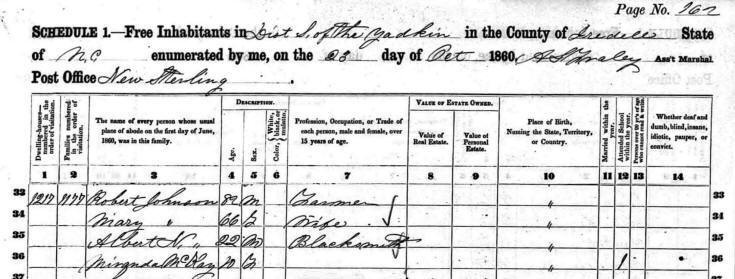 Page No. 262
SCHEDULE 1.—Free Inhabitants in Dist S. of the Yadkin in the County of Iredell State
of NC enumerated by me, on the 23 day of Oct 1860, Ass't Marshal.
Post Office New Sterling
Dwelling-houses—numbered in the order of visitation.
Families numbered in the order of visitation.
The name of every person whose usual place of abode on the first day of June, 1860, was in this family.
DESCRIPTION.
Age.
Sex.
Color, White, black, or mulatto.
Profession, Occupation, or Trade of each person, male and female, over 15 years of age.
VALUE OF ESTATE OWNED.
Value of Real Estate.
Value of Personal Estate.
Place of Birth, Naming the State, Territory, or Country.
Married within the year.
Attended School within the year.
Whether deaf and dumb, blind, insane, idiotic, pauper, or convict.
1 2 3 4 5 6 7 8 9 10 11 12 13 14
33 1217 1177 Robert Johnson M Farmer " 33
34 Mary " 66 f Wife " 34
35 Albert N. " 22 M Blacksmith " 35
36 Miranda McKay 10 f " 1 36
37